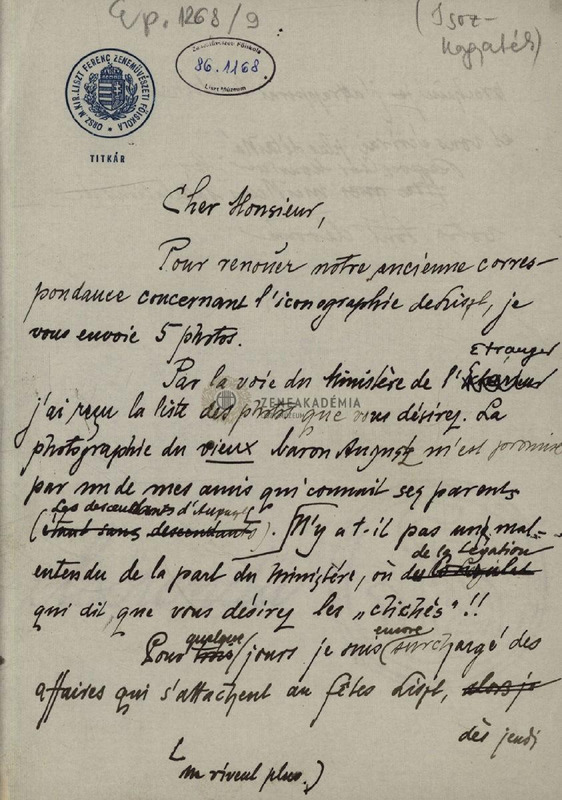 Ep. 1268/9
(Isoz-
hagyaték)
Zeneművészeti Főiskola
86.1168
Liszt Múzeum
ORSZ. M. KIR. LISZT FERENC ZENEMŰVÉSZETI FŐISKOLA
TITKÁR
Cher Monsieur,
Pour renouer notre ancienne corres-
pondance concernant l'iconographie de Liszt, je
vous envoie 5 photos.
Etranger
Par la voie du Ministère de l'
j'ai reçu la liste des photos que vous désirez. La
ZENEAKADÉMIA
photographie du vieux baron Augusz m'est promise
par un de mes amis qui connait ses parents
Les descendants d'Augusz
(étant sans descendants). N'y a t-il pas un mal-
de la Légation
entendu de la part du Ministère, où de
qui dit que vous désirez les „clichés"!!
quelque encore
Pour trois jours je suis surchargé des
affaires qui s'attachent au fêtes Liszt, alors je
dès jeudi
ne vivent plus.)